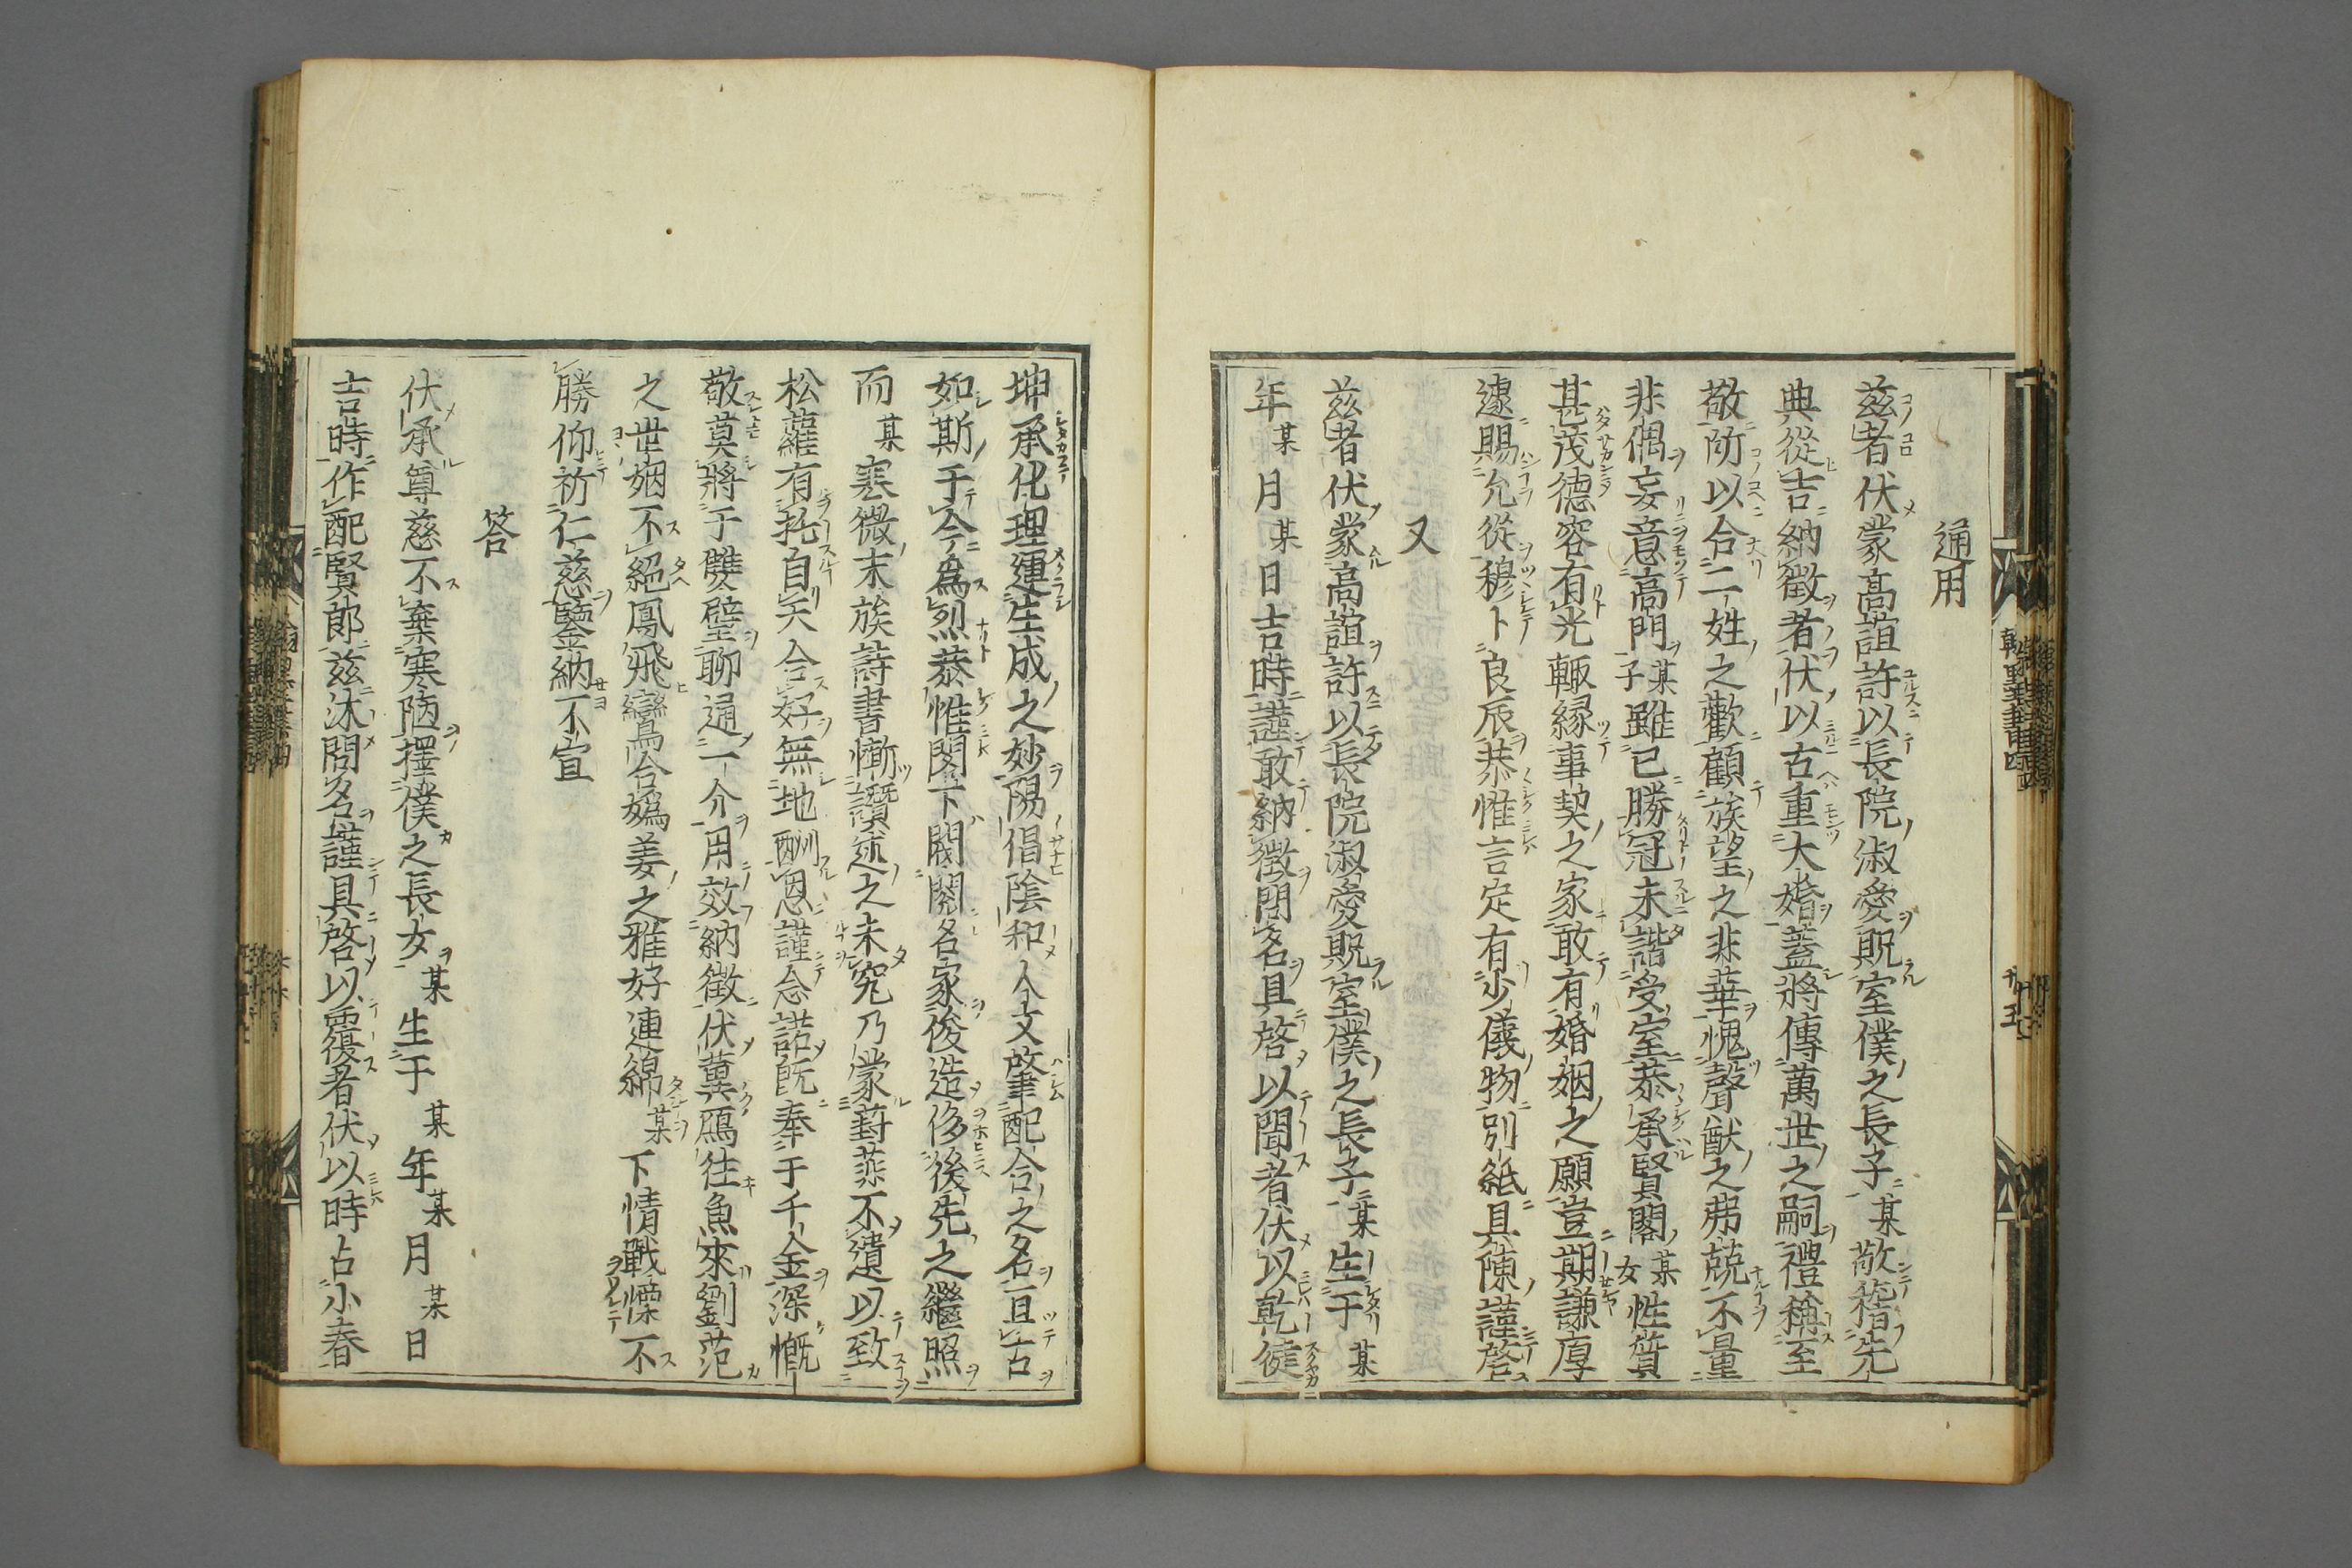 通用
茲者伏蒙高誼許以長院淑愛貺室僕之長子某敬稽先
典從吉納徵者伏以古重大婚蓋將傳萬世之嗣禮稱至
敬所以合二姓之歡顧族望之非華愧聲猷之弗競不量
非偶妄意高門某子雖已勝冠未諧受室恭承賢閣某女性質
甚茂德容有光輙緣事契之家敢有婚姻之願豈期謙厚
遽賜允從穆卜良辰恭惟言定有少儀物別紙具陳謹啓
又
茲者伏蒙高誼許以長院淑愛貺室僕之長子某生于某
年某月某日吉時謹敢納徵問名具啓以聞者伏以乾健
坤承化理運生成之妙陽倡陰和人文肇配合之名亘古
如斯于今為烈恭惟閣下閥閱名家俊造侈後先之繼照
而某寒微末族詩書慚讚述之未究乃蒙葑菲不遺以致
松蘿有托自天合好無地酬恩謹念諾既奉于千金深慨
敬莫將于雙璧聊通一介用效納徵伏冀鴈往魚來劉范
之世姻不絕鳳飛鸞合媯姜之雅好連綿某下情戰慄不
勝仰祈仁慈鑒納不宣
答
伏承尊慈不棄寒陋擇僕之長女某生于某年某月某日
吉時作配賢郎茲沐問名謹具啓以覆者伏以時占小春